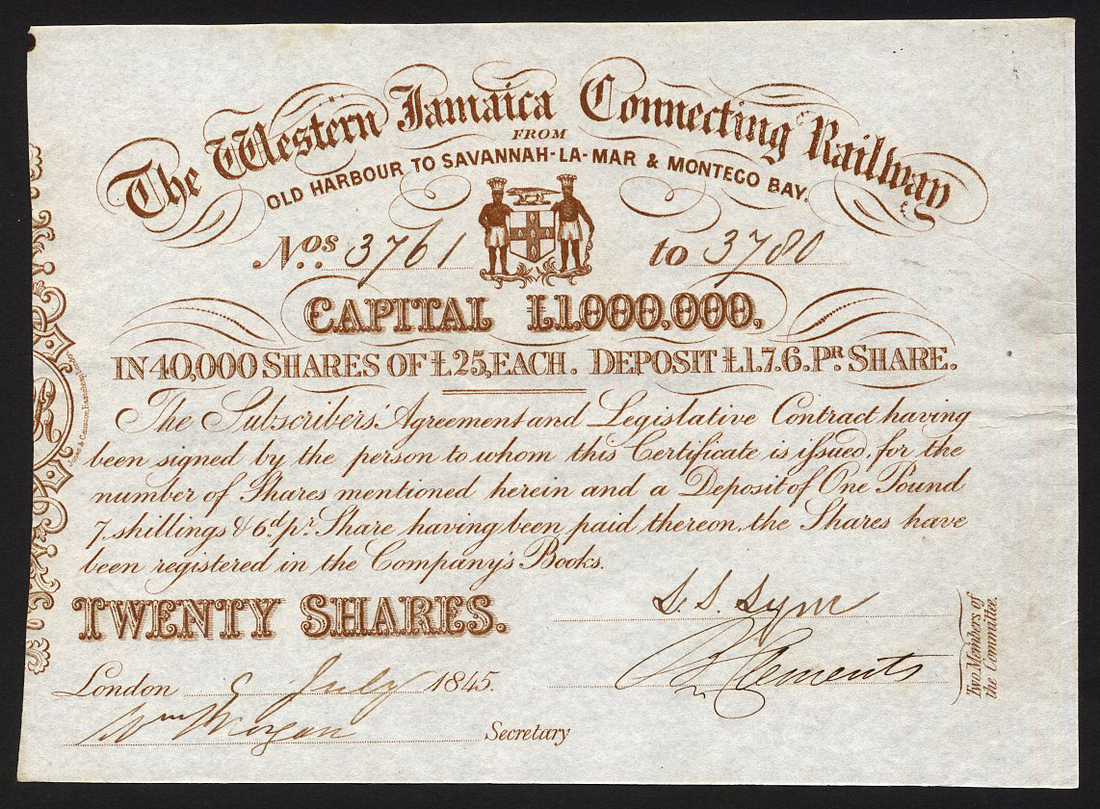 The Western Jamaica Connecting Railway
FROM
OLD HARBOUR TO SAVANNAH-LA-MAR & MONTEGO BAY.
Nos. 3761 to 3780
CAPITAL £1000,000.
IN 40,000 SHARES OF £25, EACH. DEPOSIT £1.7.6. PR SHARE.
The Subscribers' Agreement and Legislative Contract having
been signed by the person to whom this Certificate is issued, for the
number of Shares mentioned herein and a Deposit of One Pound
7 shillings & 6d. pr. Share having been paid thereon, the Shares have
been registered in the Company's Books.
TWENTY SHARES.
S. S. Sym
Clements
Two Members of
the Committee.
London 9 July 1845.
Wm Morgan Secretary